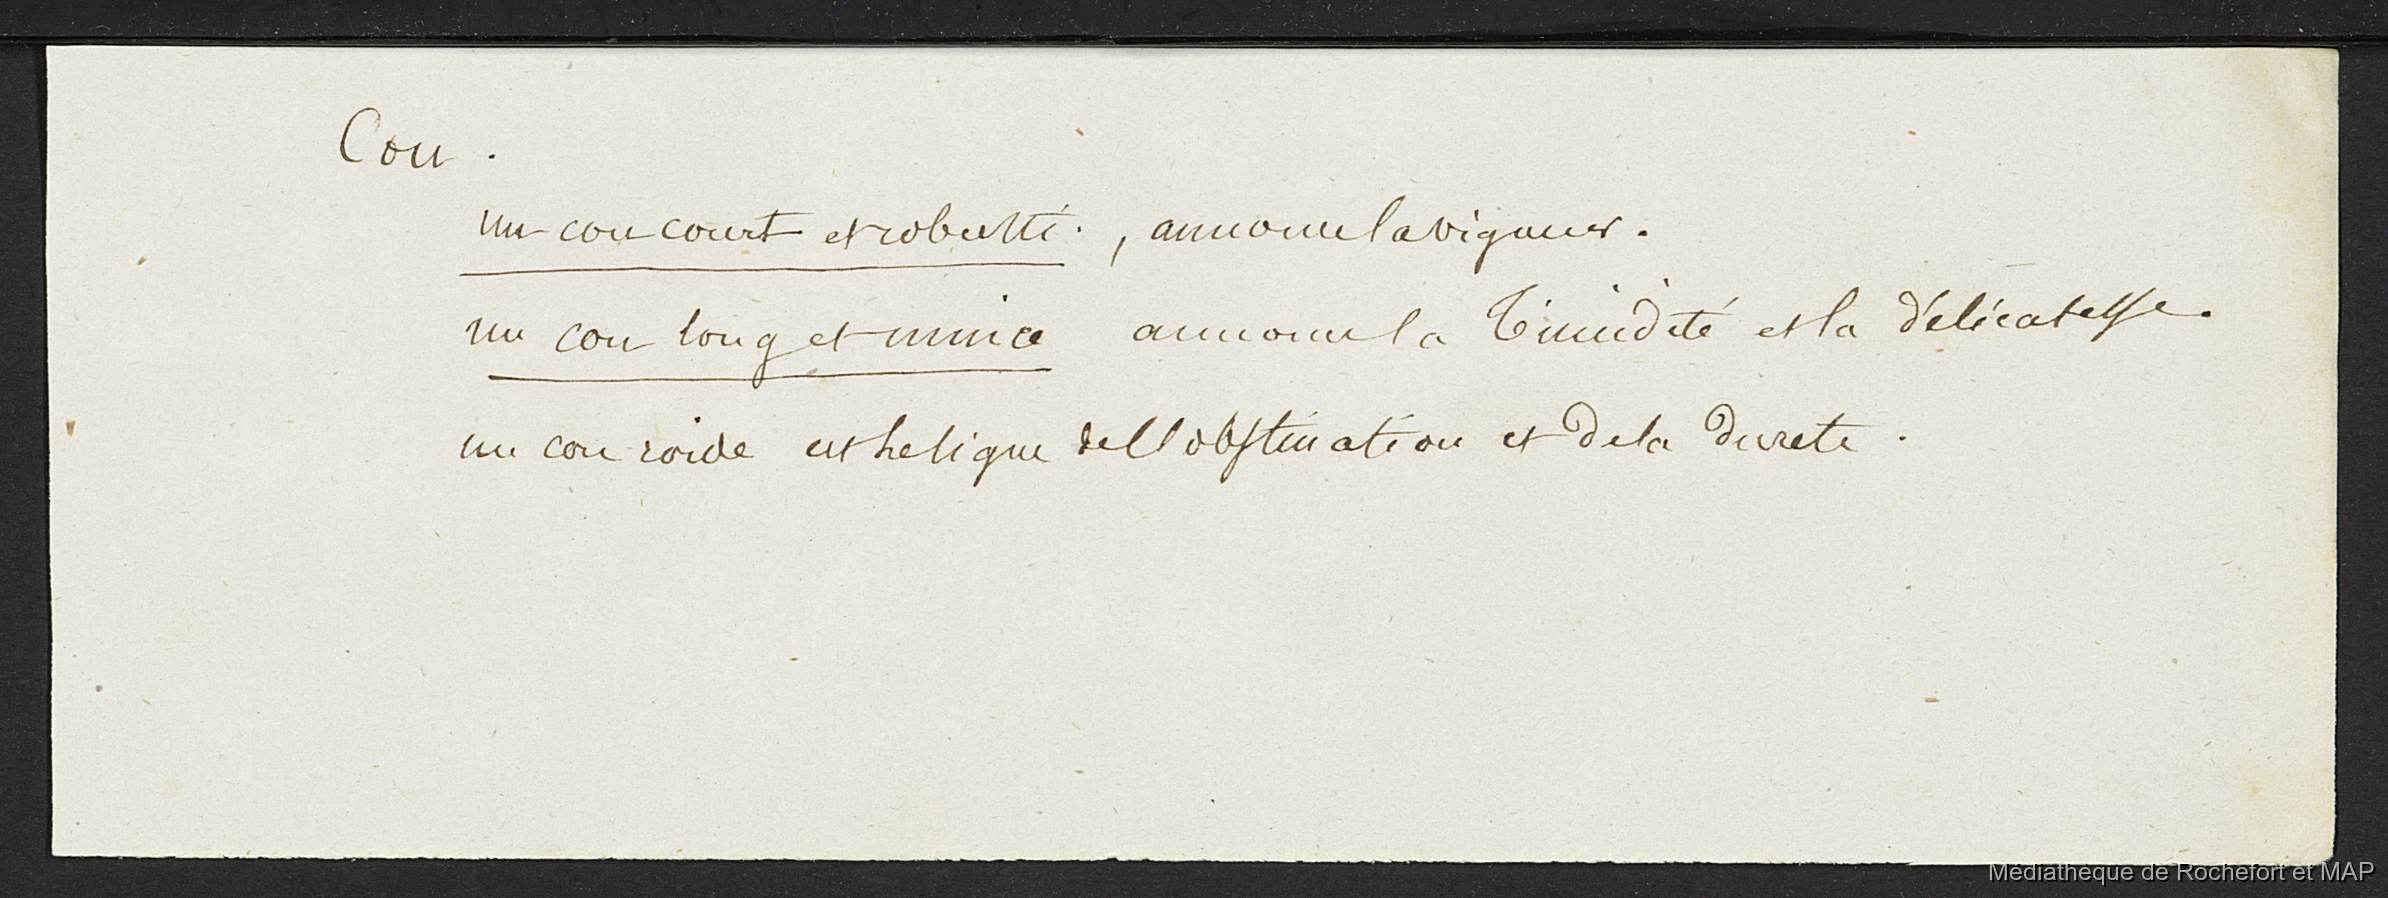 Cou.
un cou court et robuste., annonce la vigueur.
un cou long et mince annonce la timidité et la délicatesse.
un cou roide est le signe de l'obstination et de la durete.
Médiathèque de Rochefort et MAP